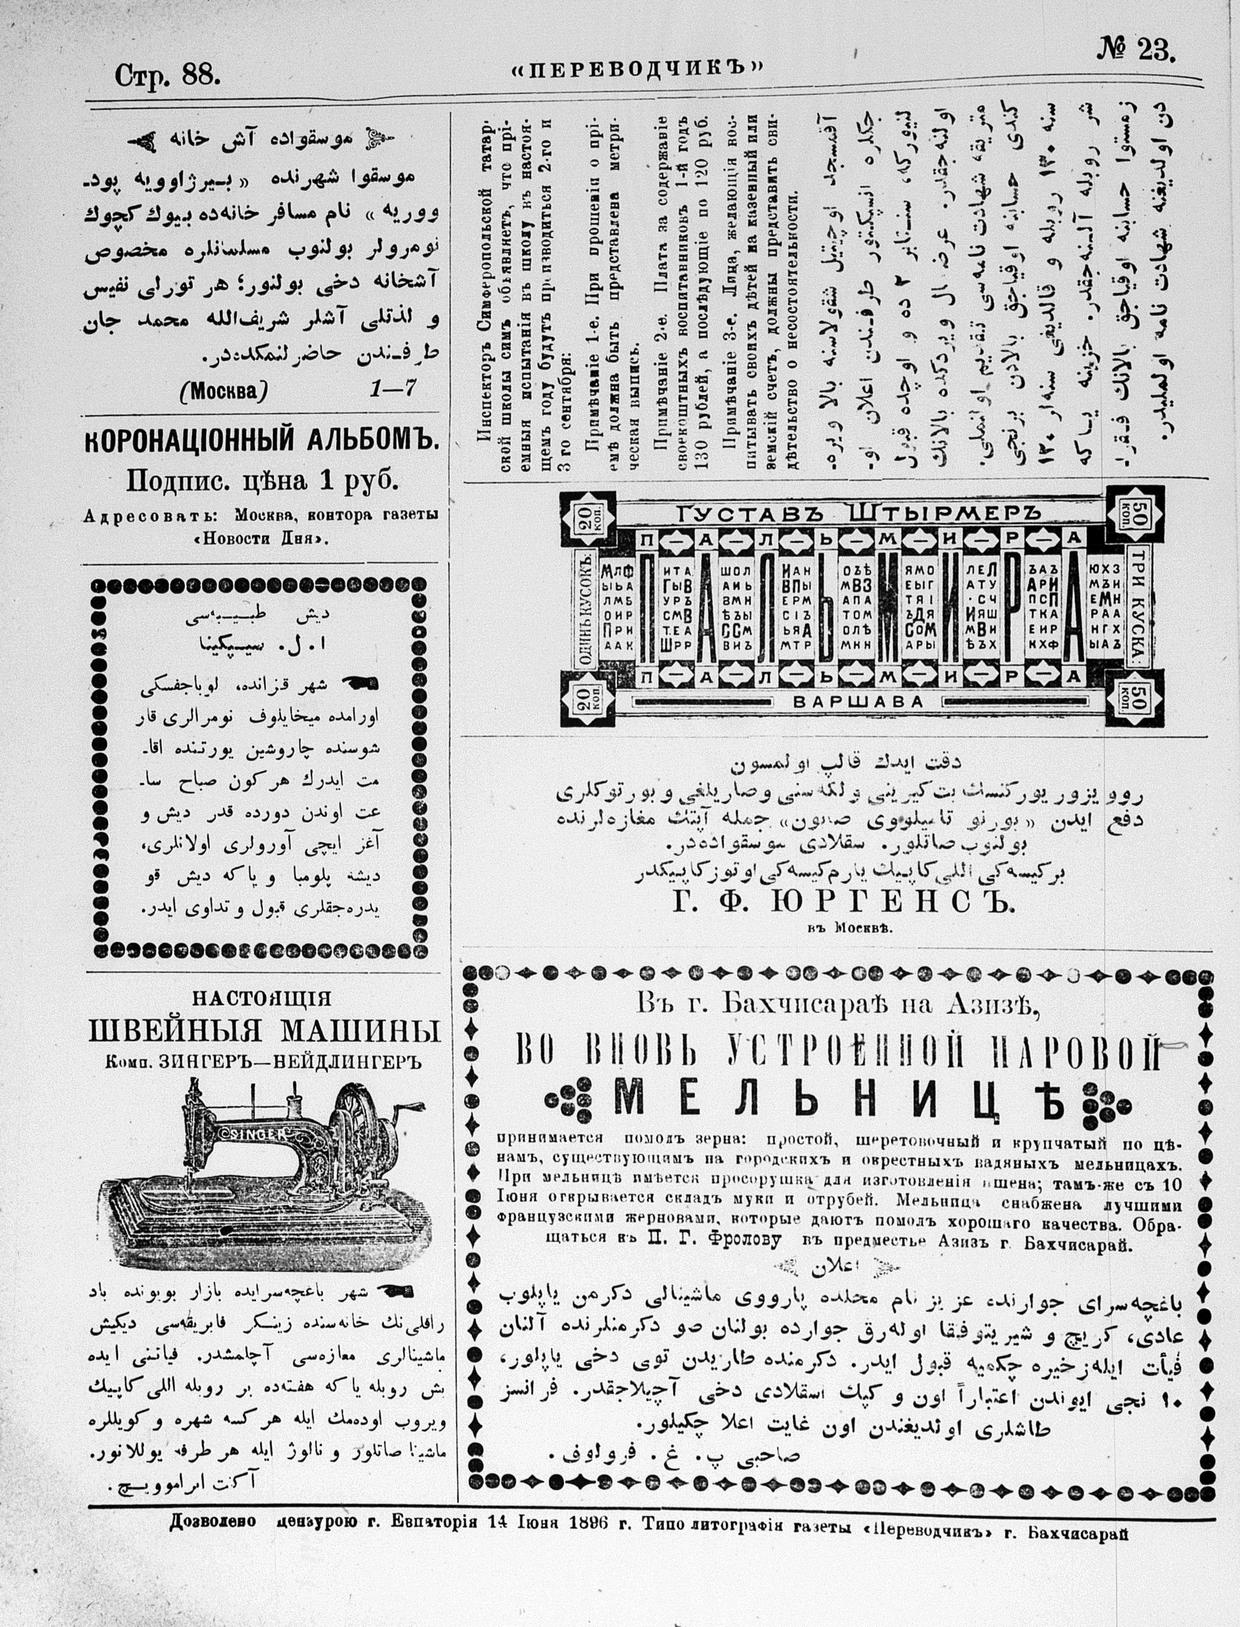 Стр. 88.
«ПЕРЕВОДЧИКЪ»
№ 23.
موسقواده آش خانه
موسقوا شهرنده « بـيرژاوويه پود‍ـ
وورىه » نام مسافر خانه‌ده بيوك كچوك
نومرولر بولنوب مسلمانلره مخصوص
آشخانه دخى بولنور؛ هر تورلى نفيس
و لذتلى آشلر شريف‌الله محمد جان
طرفـندن حاضرلنمكده‌در.
(Москва) 1—7
КОРОНАЦІОННЫЙ АЛЬБОМЪ.
Подпис. цѣна 1 руб.
Адресовать: Москва, контора газеты
«Новости Дня».
ديش طبيـبـه‌سى
ا. ل. سيـپكينا
شهر قزانده، لوباجفسكى
اورامده ميخايلوف نومرالرى قار
شوسنده چاروشين يورتنده اقاـ
مت ايدرك هركون صباح ساـ
عت اوندن دورده قدر ديش و
آغز ايچى آورولرى اولانلرى،
ديشه پلومبا و ياكه ديش قو
يدره‌جقلرى قبول و تداوى ايدر.
НАСТОЯЩІЯ
ШВЕЙНЫЯ МАШИНЫ
Комп. ЗИНГЕРЪ—НЕЙДЛИНГЕРЪ
SINGER
شهر باغچه‌سرايده بازار بويونده باد
راقلى‌نك خانه‌سنده زينـكر فابريقه‌سى ديكيش
ماشينالرى مغازه‌سى آچلمشدر. فياتنى ايده
بش روبله ياكه هفته‌ده بر روبله اللى كاپيك
ويروب اوده‌مك ايله هركسه شهره و كويللره
ماشينا صاتلور و نالوژ ايله هر طرفه يوللانور.
آكنت ابراموويـچ.
Инспекторъ Симферопольской татар-
ской школы симъ объявляетъ, что прі-
емныя испытанія въ школу въ настоя-
щемъ году будутъ производиться 2-го и
3 го сентября:
Примѣчаніе 1-е. При прошеніи о прі-
емѣ должна быть представлена метри-
ческая выпись.
Примѣчаніе 2-е. Плата за содержаніе
своекоштныхъ воспитанниковъ 1-й годъ
130 рублей, а послѣдующіе по 120 руб.
Примѣчаніе 3-е. Лица, желающія вос-
питывать своихъ дѣтей на казенный или
земскій счетъ, должны представить сви-
дѣтельство о несостоятельности.
آقمسجد اوچيتيل شقولاسنه بالا ويره‌ـ
جكلره انسپكتور طرفـندن اعلان اوـ
لنيوركه، سنتابر ٢ ده و اوچده قبول
اولنه‌جقدر. عرضحال ويردكده بالانك
متريقه شهادت نامه‌سى تقديم اولنملى.
كندى حسابنه اوقياجق بالادن برنجى
سنه ١٣٠ روبله و قالديغى سنه‌لر ١٢٠
شر روبله آلنه‌جقدر. خزينه ياكه
زمستوا حسابنه اوقياجق بالانك فقراـ
دن اولديغنه شهادت نامه اولمليدر.
20 коп.
ГУСТАВЪ ШТЫРМЕРЪ
50 коп.
ОДИНЪ КУСОКЪ
ПАЛЬМИРА
ПАЛЬМИРА
ТРИ КУСКА
ПАЛЬМИРА
20 коп.
ВАРШАВА
50 коп.
دقت ايدك قالپ اولمسون
روويزور يوركنسك بت‌كيرينى ولكه‌سنى وصاريلغى و بورتوكلرى
دفع ايدن «بورنو تاميلووى صابون» جمله آپتك مغازه‌لرنده
بولنوب صاتلور. سقلادى موسقواده‌در.
بركيسه‌كى اللى كاپيك يارم كيسه‌كى اوتوز كاپيكدر
Г. Ф. ЮРГЕНСЪ.
въ Москвѣ.
Въ г. Бахчисараѣ на Азизѣ,
ВО ВНОВЬ УСТРОЕННОЙ ПАРОВОЙ
МЕЛЬНИЦѢ
принимается помолъ зерна: простой, шеретовочный и крупчатый по цѣ-
намъ, существующимъ на городскихъ и окрестныхъ вадяныхъ мельницахъ.
При мельницѣ имѣется просорушка для изготовленія пшена; тамъ-же съ 10
Іюня открывается складъ муки и отрубей. Мельница снабжена лучшими
французскими жерновами, которые даютъ помолъ хорошаго качества. Обра-
щаться къ П. Г. Фролову въ предместье Азизъ г. Бахчисарай.
اعلان
باغچه‌سراى جوارنده، عزيز نام محلده پارووى ماشينالى دكرمن ياپلوب
عادى، كريچ و شيريتوفقا اوله‌رق جوارده بولنان صو دكرمنلرنده آلنان
فيأت ايله ذخيره چكمه‌يه قبول ايدر. دكرمنده طاريدن توى دخى ياپلور،
١٠ نجى ايوندن اعتباراً اون و كپك اسقلادى دخى آچيلاجقدر. فرانسز
طاشلرى اولديغندن اون غايت اعلا چكيلور.
صاحبى پ. غ. فرولوف.
Дозволено цензурою г. Евпаторія 14 Іюня 1896 г. Типо литографія газеты «Переводчикъ» г. Бахчисарай